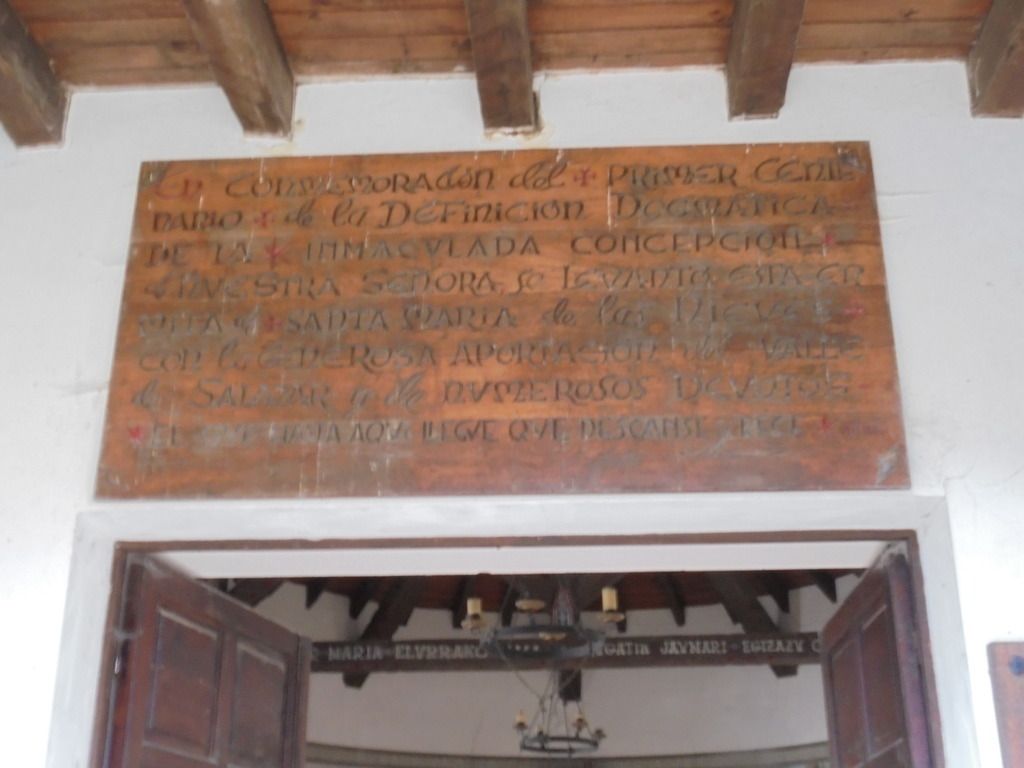 En CONMEMORACIÓN del + PRIMER CENTE
NARIO + de la DEFINICIÓN DOGMÁTICA
DE LA + INMACVLADA CONCEPCIÓN +
d NVESTRA SEÑORA, se LEVANTÓ ESTA ER
MITA d + SANTA MARIA de las NIEVES +
CON la GENEROSA APORTACIÓN del VALLE
de SALAZAR y de NVMEROSOS DEVOTOS
+ EL QVE HASTA AQVI LLEGVE QVE DESCANSE RECE +
MARIA ELVRRAKO JAVNARI - EGIZAZV